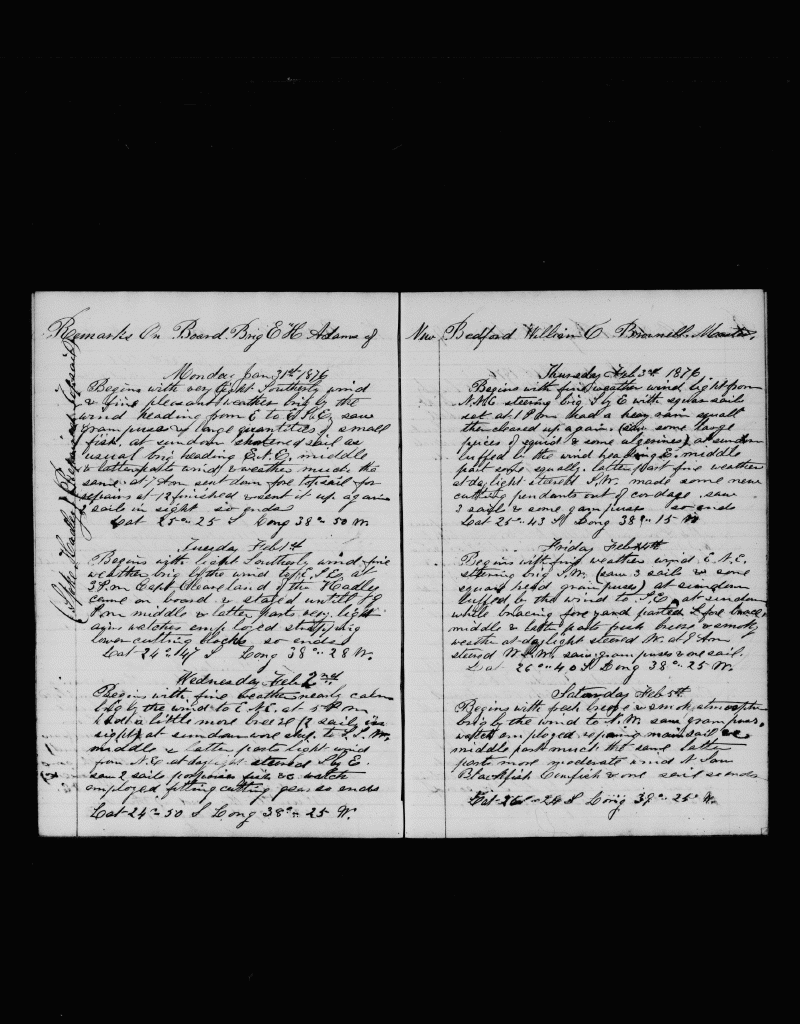 Remarks On Board Brig E H Adams of
Monday Jan 31st 1876
Begins with very light Southerly wind
& fine pleasant weather brig by the
wind heading from E to E.S.E. saw
grampuses & large quantities of small
fish. at sundown shortened sail as
usual brig heading E.N.E. middle
& latter parts wind & weather much the
same. at 7 Am sent down fore topsail for
repairs at 12 finished & sent it up again
2 sail in sight so ends
Lat 25°- 25 S Long 38°- 50 W.
Tuesday Feb 1st
Begins with light Southerly wind fine
weather brig by the wind to E.S.E. at
3 P.m Capt Cleaveland of the Hadley
came on board & stayed until
P.m middle & latter parts very light
airs watches employed strapping
lower cutting blocks so ends
Lat 24°- 47 S Long 38°- 28 W.
Wednesday Feb 2nd
Begins with fine weather nearly calm
brig by the wind to E.N.E. at 5 P.m
had a little more breeze (2 sails in
sight) at sundown wore ship to S.S.W.
middle & latter parts light wind
from N.E. at daylight steered S by E.
saw 2 sails porpoises fish &c watch
employed fitting cutting gear so ends
Lat 24°- 50 S Long 38°- 25 W.
(Spoke Hadley)
New Bedford William C Brownell. Master.
Thursday Feb 3rd 1876.
Begins with fine weather wind light from
N.N.E. steering brig S by E with square sails
set at 1 P.m had a heavy rain squall
then cleared up again. (saw some large
pieces of squid & some algerines) at sundown
luffed by the wind heading E. middle
part some squally. latter part fine weather
at daylight steered S.W. made some new
cutting pendants out of cordage. saw
3 sails & some grampuses so ends
Lat 25°- 43 S Long 38°- 15 W
Friday Feb 4th
Begins with fine weather wind E.N.E.
steering brig S.W. (saw 3 sails & some
square head grampuses) at sundown
luffed by the wind to S.E. at sundown
while bracing fore yard parted S fore brace
middle & latter parts fresh breeze & smoky
weather at daylight steered W. at 8 Am
steered W.S.W. saw grampuses & one sail.
Lat 26°- 40 S Long 38°- 25 W.
Saturday Feb 5th
Begins with fresh breeze & smoky atmosphere
brig by the wind to N.W. saw grampuses,
watch employed repairing mainsail &c
middle part much the same latter
parts more moderate wind N saw
Blackfish Cowfish & one sail so ends
Lat 26°- 24 S Long 39°- 25 W.